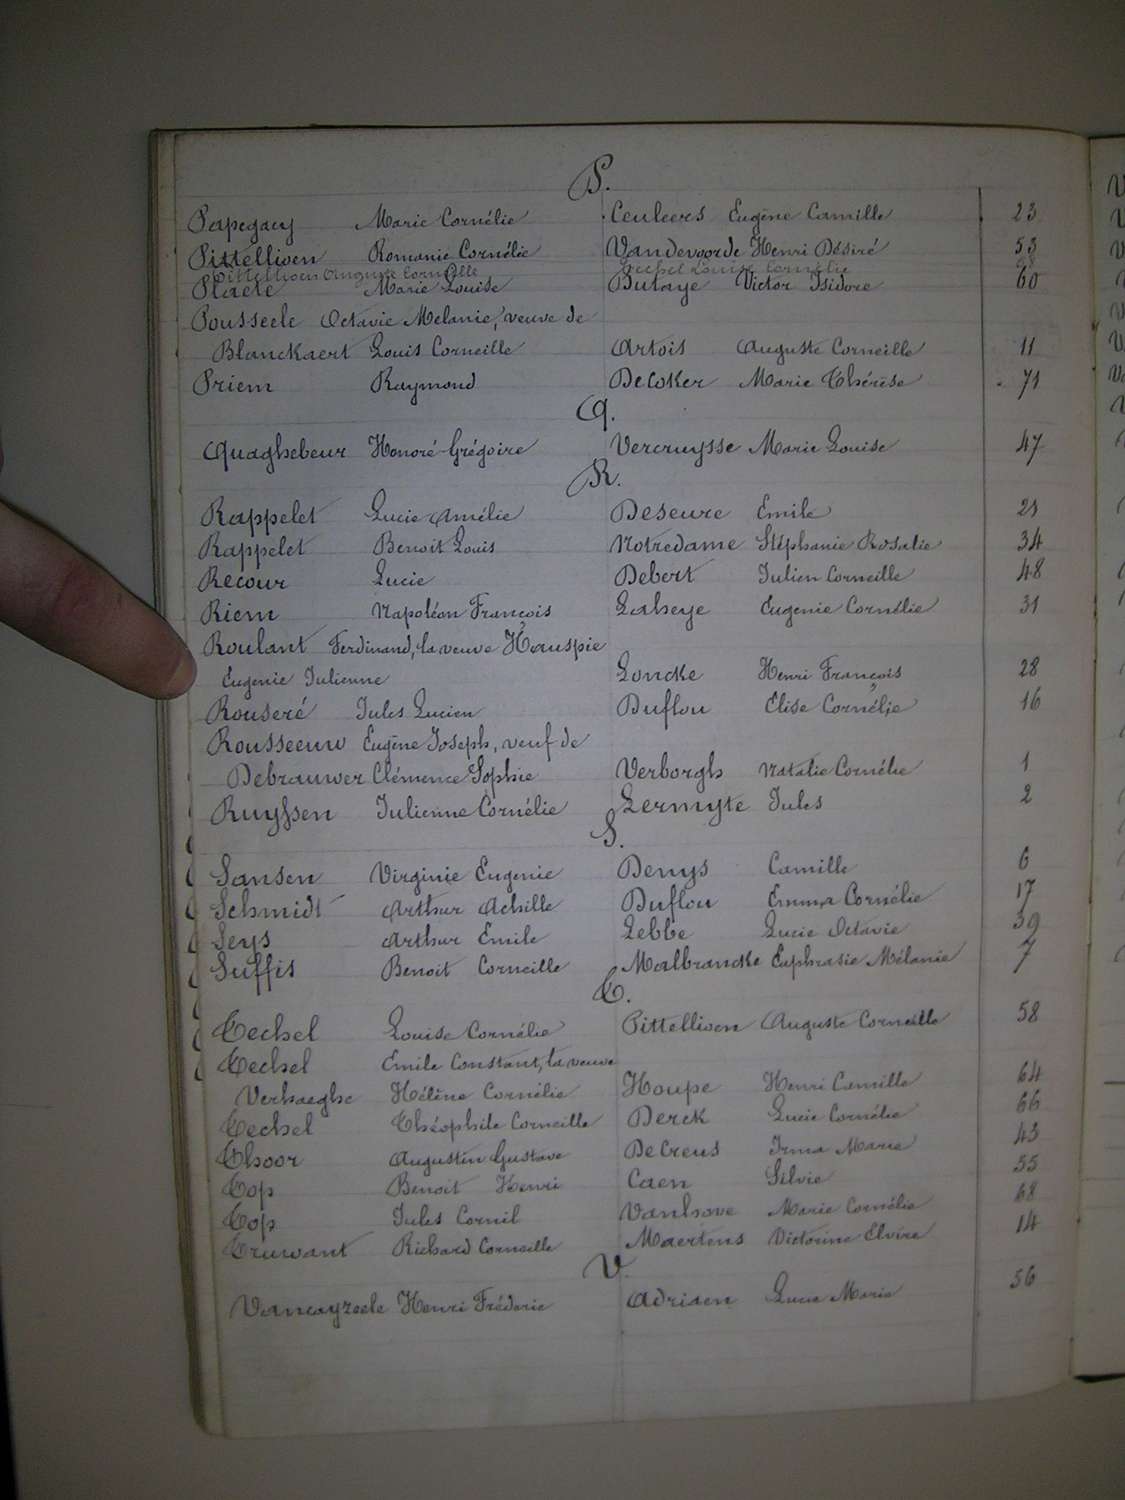 P.
Papegaey Marie Cornélie Ceuleers Eugène Camille 23
Pittellioen Romanie Cornélie Vandevoorde Henri Désiré 53
Pittellioen Auguste Corneille Techel Louise Cornélie 58
Plaete Marie Louise Butaye Victor Isidore 60
Pousseele Octavie Mélanie, veuve de
Blanckaert Louis Corneille Artois Auguste Corneille 11
Priem Raymond DeCoker Marie Thérèse 71
Q.
Quaghebeur Honoré Grégoire Vercruysse Marie Louise 47
R.
Rappelet Lucie Amélie Deseure Emile 21
Rappelet Benoit Louis Notredame Stéphanie Rosalie 34
Recour Lucie Debert Julien Corneille 48
Riem Napoléon François Laheye Eugenie Cornélie 31
Roulant Ferdinand, la veuve Hauspie
Eugenie Julienne Loncke Henri François 28
Rouseré Jules Lucien Duflou Elise Cornélie 16
Rousseeuw Eugène Joseph, veuf de
Debrauwer Clémence Sophie Verborgh Natalie Cornélie 1
Ruyssen Julienne Cornélie Lermyte Jules 2
S.
Sansen Virginie Eugenie Denys Camille 6
Schmidt Arthur Achille Duflou Emma Cornélie 17
Seys Arthur Emile Lebbe Lucie Octavie 39
Suffis Benoit Corneille Malbrancke Euphrasie Mélanie 7
T.
Techel Louise Cornélie Pittellioen Auguste Corneille 58
Techel Emile Constant, la veuve
Verhaeghe Hélène Cornélie Houpe Henri Camille 64
Techel Théophile Corneille Derck Lucie Cornélie 66
Thoor Augustin Gustave DeCreus Irma Marie 43
Top Benoit Henri Caen Silvie 55
Top Jules Cornil Vanhove Marie Cornélie 68
Truwant Richard Corneille Maertens Victorine Elvire 14
V.
Vancayzeele Henri Fréderic Adriaen Lucie Marie 56